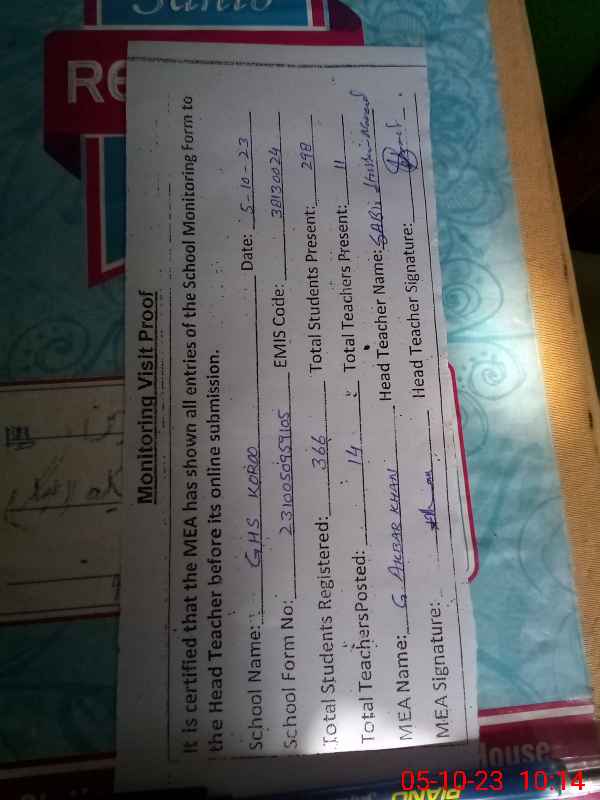 Monitoring Visit Proof
It is certified that the MEA has shown all entries of the School Monitoring Form to
the Head Teacher before its online submission.
School Name: GHS KOROO Date: 5-10-23
School Form No: 2310050959105 EMIS Code: 38130024
Total Students Registered: 366 Total Students Present: 298
Total TeachersPosted: 14 Total Teachers Present: 11
MEA Name: G AKBAR KHAN Head Teacher Name:
MEA Signature: Head Teacher Signature:
RE
House
BIANO
05-10-23 10:14